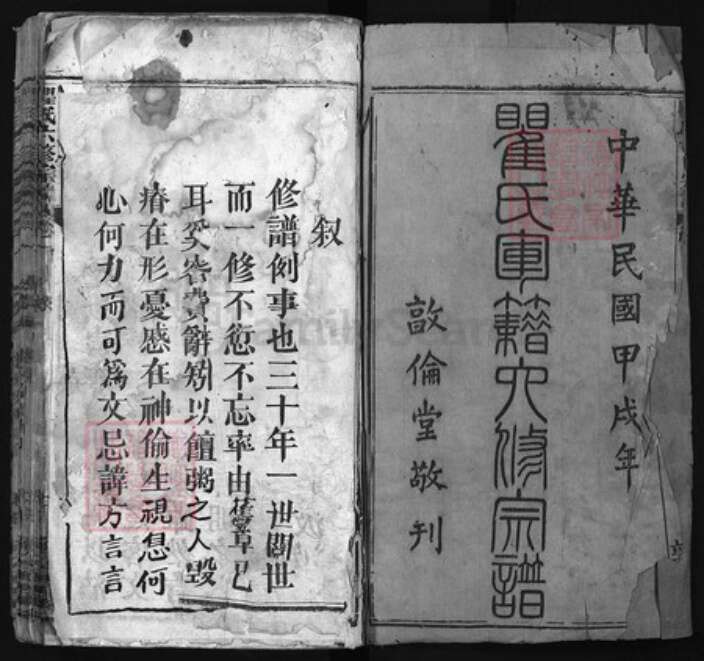 中華民國甲戌年
瞿氏軍籍六修宗譜
敦倫堂敬刊
叙
修譜例事也三十年一世閱世
而一修不愆不忘率由舊章已
耳奚容費辭矧以饘粥之人毀
瘠在形憂慼在神倫生視息何
心何力而可為文忌諱方言言